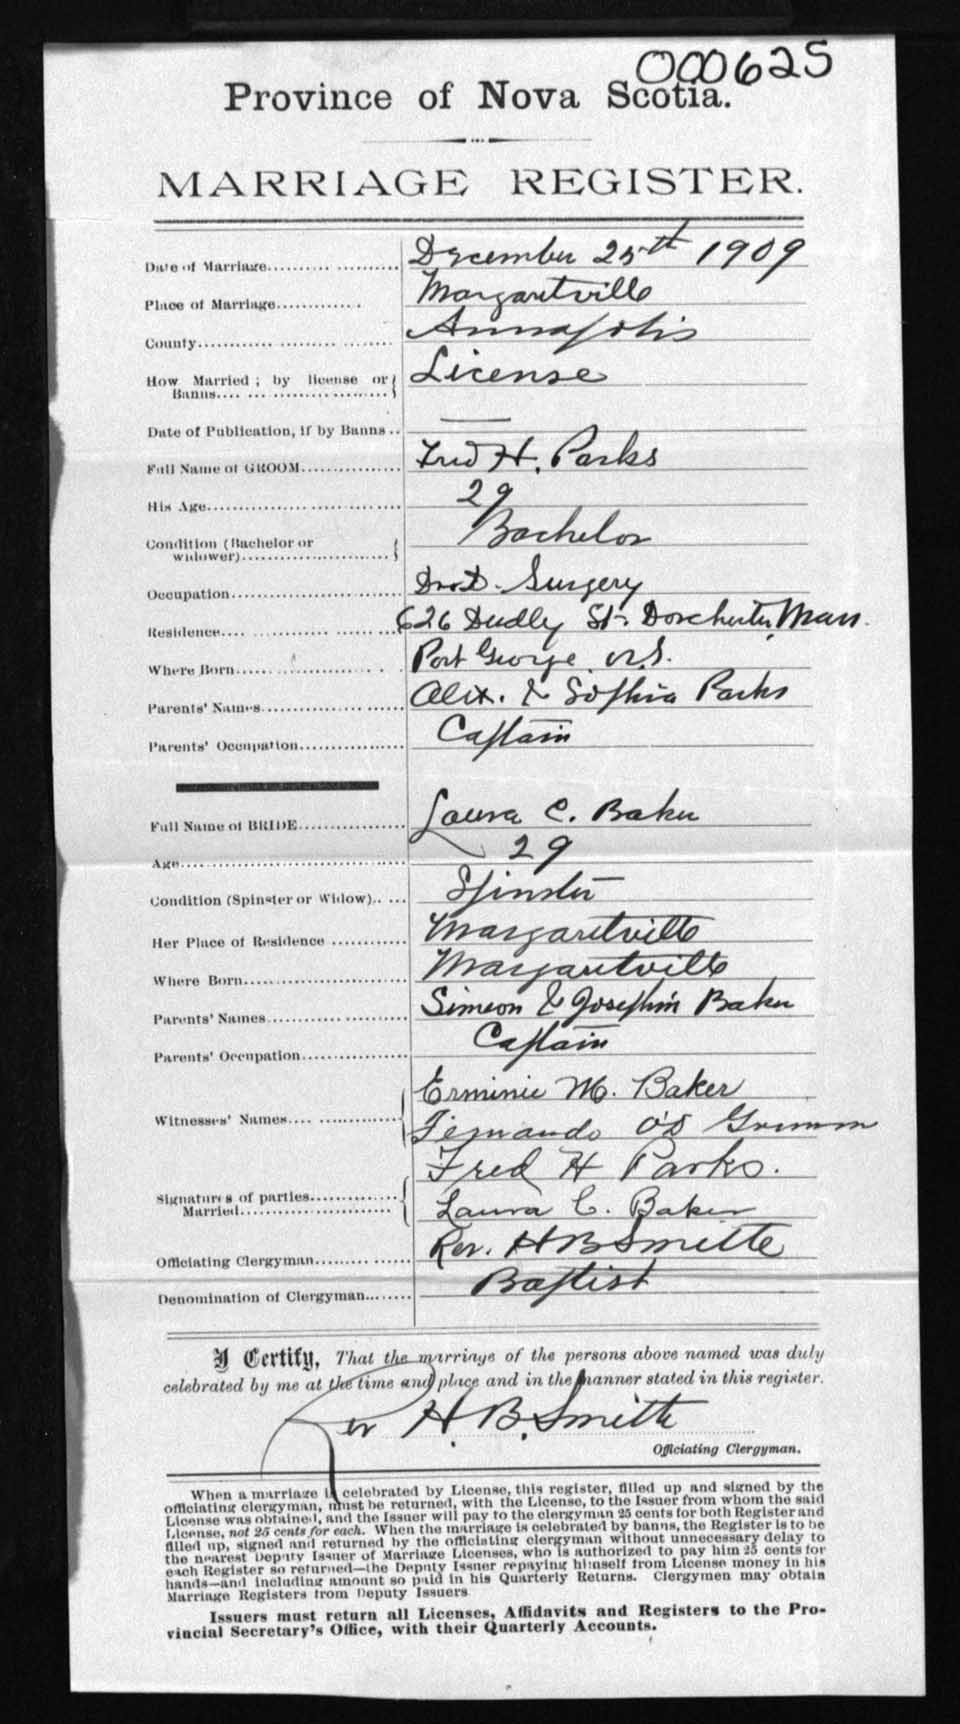 000625
Province of Nova Scotia.
MARRIAGE REGISTER.
Date of Marriage.................... December 25th 1909
Place of Marriage............. Margaretville
County.......................... Annapolis
How Married ; by license or Banns.................... License
Date of Publication, if by Banns .. —
Full Name of GROOM................ Fred H. Parks
His Age............................ 29
Condition (Bachelor or widower)....................... Bachelor
Occupation........................ Surgery
Residence.......................... 626 Dudley St. Dorchester, Mass.
Where Born.................... Port George N.S.
Parents' Names.................... Alex. & Sophia Parks
Parents' Occupation................ Captain
Full Name of BRIDE................ Laura C. Baker
Age................................ 29
Condition (Spinster or Widow)..... Spinster
Her Place of Residence ............ Margaretville
Where Born........................ Margaretville
Parents' Names.................... Simeon & Josephin Baker
Parents' Occupation................ Captain
Witnesses' Names.................. Erminie M. Baker
Fernando
Signatures of parties Married.................... Fred H Parks.
Laura C. Baker
Officiating Clergyman.............. Rev. H B Smith
Denomination of Clergyman........ Baptist
I Certify, That the marriage of the persons above named was duly
celebrated by me at the time and place and in the manner stated in this register.
Rev H. B. Smith
Officiating Clergyman.
When a marriage is celebrated by License, this register, filled up and signed by the
officiating clergyman, must be returned, with the License, to the Issuer from whom the said
License was obtained, and the Issuer will pay to the clergyman 25 cents for both Register and
License, not 25 cents for each. When the marriage is celebrated by banns, the Register is to be
filled up, signed and returned by the officiating clergyman without unnecessary delay to
the nearest Deputy Issuer of Marriage Licenses, who is authorized to pay him 25 cents for
each Register so returned—the Deputy Issuer repaying himself from License money in his
hands—and including amount so paid in his Quarterly Returns. Clergymen may obtain
Marriage Registers from Deputy Issuers.
Issuers must return all Licenses, Affidavits and Registers to the Pro-
vincial Secretary's Office, with their Quarterly Accounts.